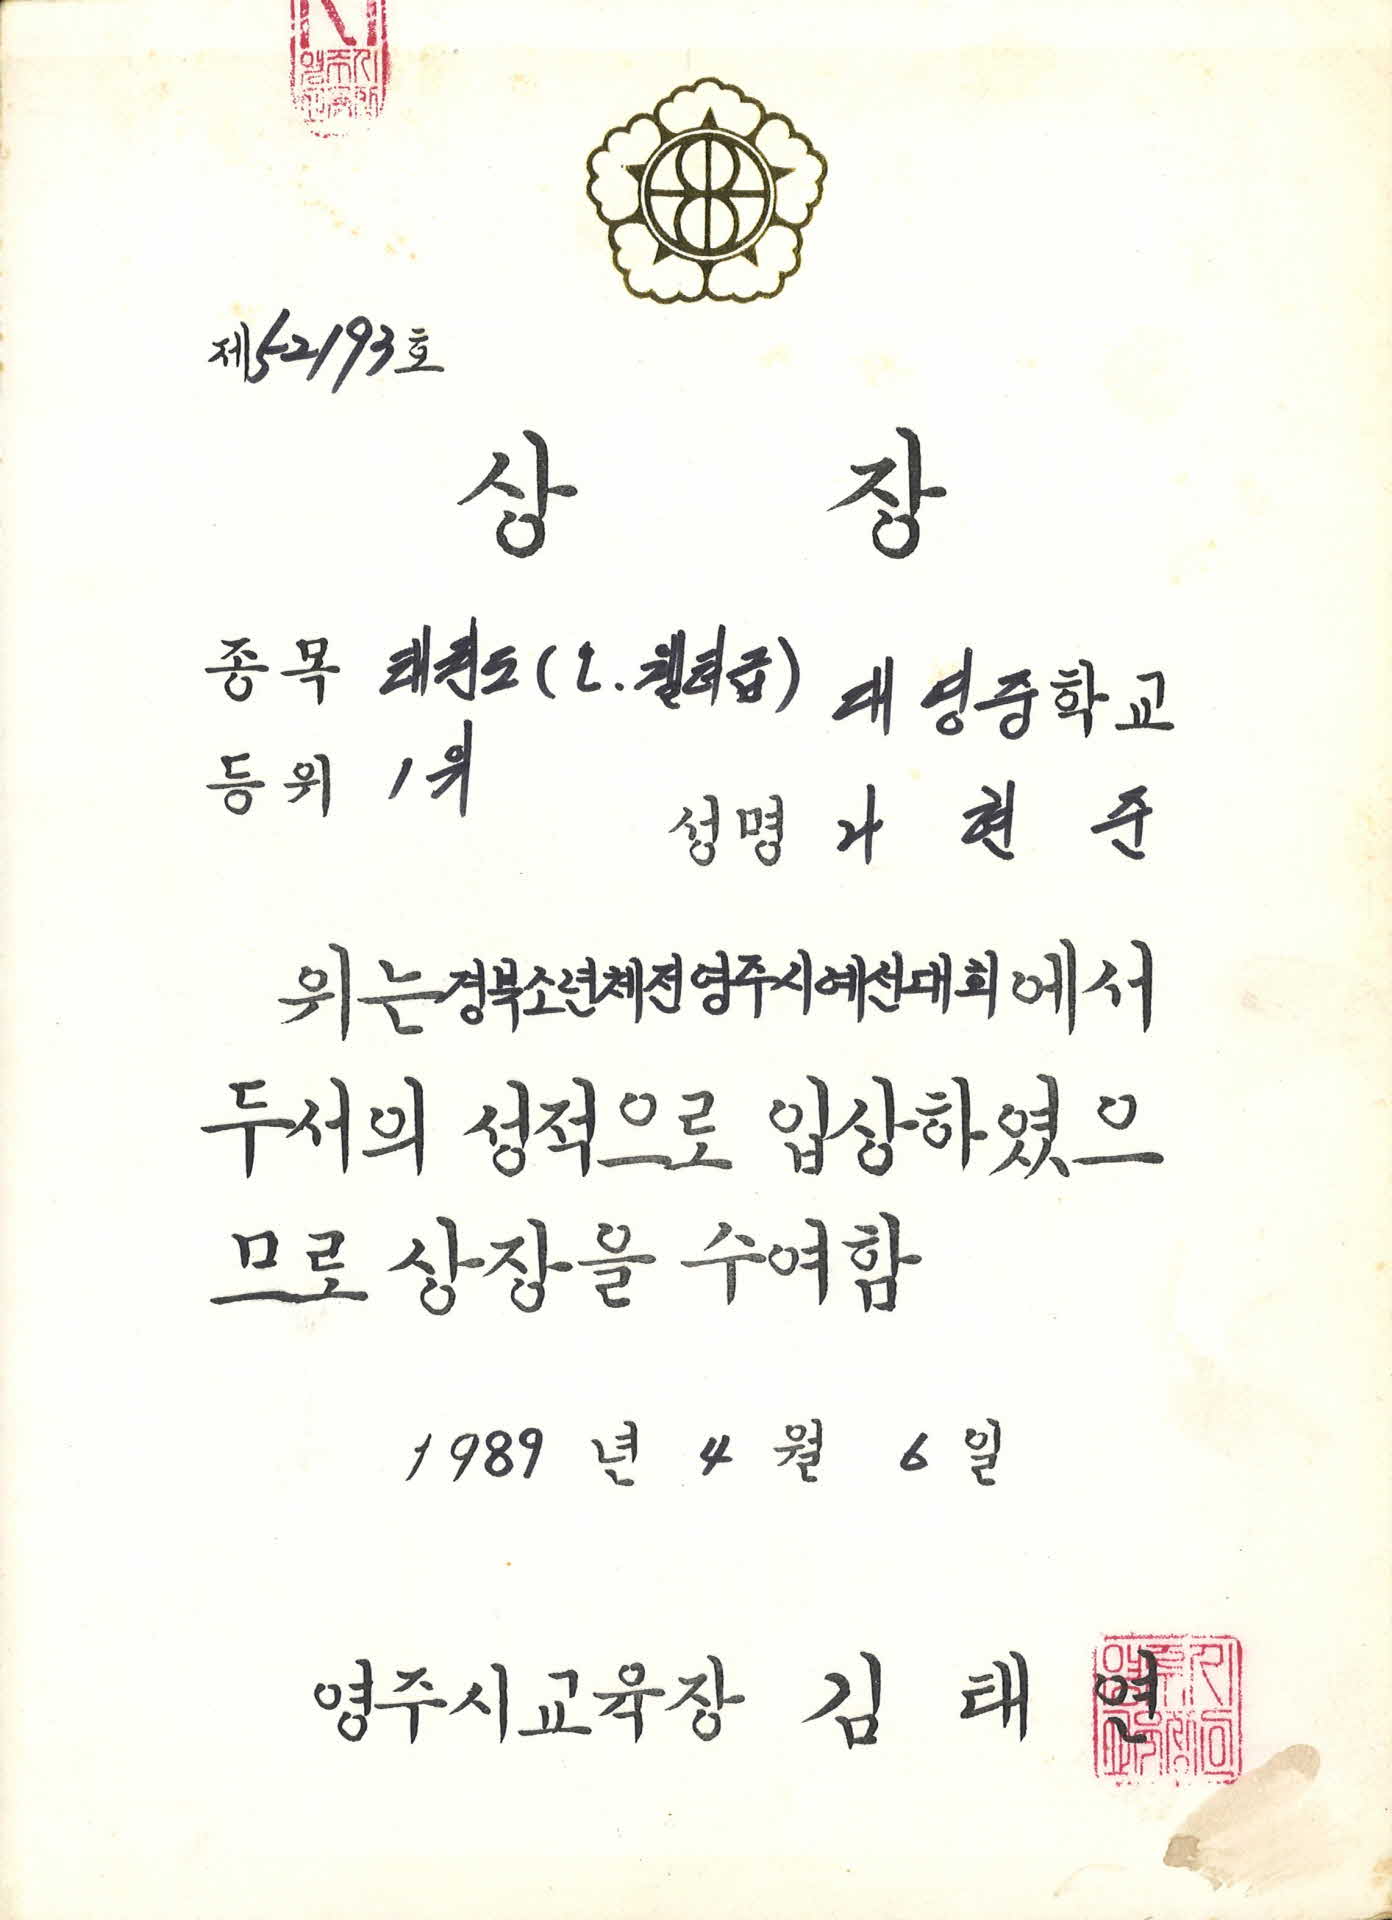 제52193호
상 장
종목 태권도(L.웰터급) 대영중학교
등위 1위
성명 가 현 준
위는 경북소년체전영주시예선대회에서
두서의 성적으로 입상하였으
므로 상장을 수여함
1989년 4월 6일
영주시교육장 김 태 연